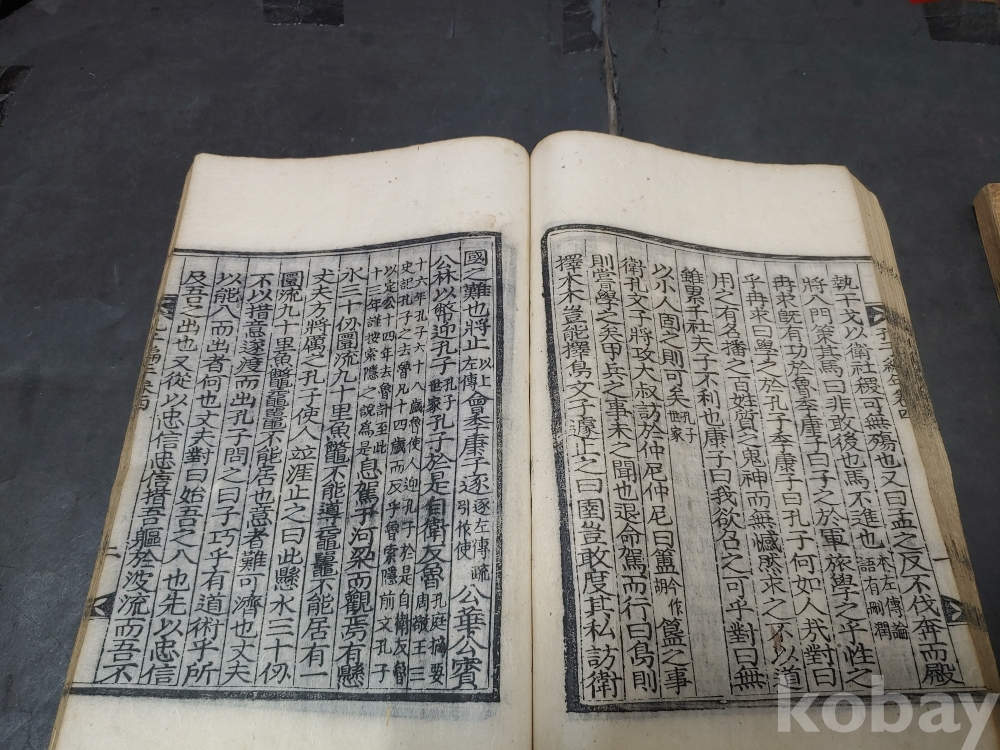 執干戈以衛社稷可無殤也又曰孟之反不伐奔而殿
將入門策其馬曰非敢後也馬不進也本左傳論語有刪潤
冉求旣有功於魯季康子曰子之於軍旅學之乎性之
乎冉求曰學之於孔子季康子曰孔子何如人㢤對曰
用之有名播之百姓質之鬼神而無憾於求之不以道
雖累千社夫子不利也康子曰我欲召之可乎對曰無
以小人固之則可矣孔子世家
衛孔文子將攻大叔訪於仲尼仲尼曰簠簋之事
則嘗學之矣甲兵之事未之聞也退命駕而行曰鳥則
擇木木豈能擇鳥文子遽止之曰圉豈敢度其私訪衛
國之難也將止以上左傳季康子逐逐左傳疏引作使公華公賓
公林以幣迎孔子孔子世家孔子於是自衛反魯孔庭摘要周敬王三
十六年孔子六十八歲魯使人迎孔子於是自衛反魯
史記孔子之去魯凡十四歲而反乎魯索隱前文孔子
以定公十四年去魯計至此
十三年謹按索隱之說為是息駕乎河梁而觀焉有懸
水三十仞圜流九十里魚鼈不能導黿鼉不能居有一
丈夫方將厲之孔子使人竝涯止之曰此懸水三十仞
圜流九十里魚鼈黿鼉不能居也意者難可濟也丈夫
不以措意遂渡而出孔子問之曰子巧乎有道術乎所
以能入而出者何也丈夫對曰始吾之入也先以忠信
及吾之出也又從以忠信忠信措吾軀於波流而吾不
kobay